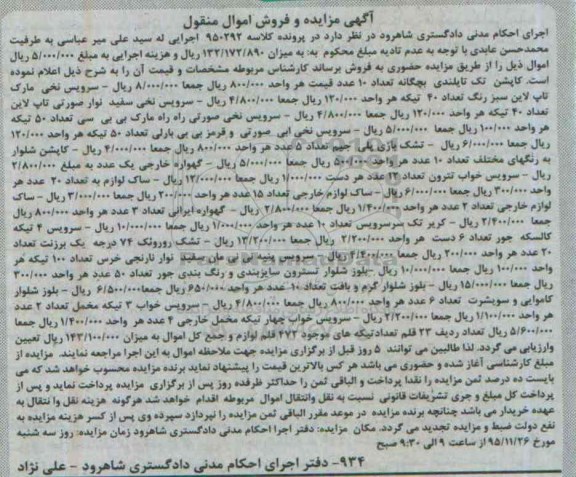 آگهی مزایده و فروش اموال منقول
اجرای احکام مدنی دادگستری شاهرود در نظر دارد در پرونده کلاسه ۹۵۰۲۹۲ اجرایی له سید علی میر عباسی به طرفیت
محمدحسن عابدی با توجه به عدم تادیه مبلغ محکوم به: به میزان ۱۳۲/۱۷۲/۸۹۰ ریال و هزینه اجرایی به مبلغ ۵/۰۰۰/۰۰۰ ریال
اموال ذیل را از طریق مزایده حضوری به فروش برساند کارشناس مربوطه مشخصات و قیمت آن را به شرح ذیل اعلام نموده
است. کاپشن تک تایلندی بچگانه تعداد ۱۰ عدد قیمت هر واحد ۸۰۰/۰۰۰ ریال جمعا ۸/۰۰۰/۰۰۰ ریال – سرویس نخی مارک
تاپ لاین سبز رنگ تعداد ۴۰ تیکه هر واحد ۱۲۰/۰۰۰ ریال جمعا ۴/۸۰۰/۰۰۰ ریال – سرویس نخی سفید نوار صورتی تاپ لاین
تعداد ۴۰ تیکه هر واحد ۱۲۰/۰۰۰ ریال جمعا ۴/۸۰۰/۰۰۰ ریال – سرویس نخی صورتی راه راه مارک بی بی سی تعداد ۵۰ تیکه
هر واحد ۱۰۰/۰۰۰ ریال جمعا ۵/۰۰۰/۰۰۰ ریال – سرویس نخی آبی صورتی و قرمز بی بی بارلی تعداد ۵۰ تیکه هر واحد ۱۲۰/۰۰۰
ریال جمعا ۶/۰۰۰/۰۰۰ ریال – تشک بازی پلی جیم تعداد ۵ عدد هر واحد ۸۰۰/۰۰۰ ریال جمعا ۴/۰۰۰/۰۰۰ ریال – کاپشن شلوار
به رنگهای مختلف تعداد ۱۰ عدد هر واحد ۵۰۰/۰۰۰ ریال جمعا ۵/۰۰۰/۰۰۰ ریال – گهواره خارجی یک عدد به مبلغ ۲/۸۰۰/۰۰۰
ریال – سرویس خواب تترون تعداد ۱۲ عدد هر دست ۱/۰۰۰/۰۰۰ ریال جمعا ۱۲/۰۰۰/۰۰۰ ریال – ساک لوازم به تعداد ۲۰ عدد هر
واحد ۳۰۰/۰۰۰ ریال جمعا ۶/۰۰۰/۰۰۰ ریال – ساک لوازم خارجی تعداد ۱۵ عدد هر واحد ۲۰۰/۰۰۰ ریال جمعا ۳/۰۰۰/۰۰۰ ریال – ساک
لوازم خارجی تعداد ۲ عدد هر واحد ۱/۴۰۰/۰۰۰ ریال جمعا ۲/۸۰۰/۰۰۰ ریال – گهواره ایرانی تعداد ۳ عدد هر واحد ۸۰۰/۰۰۰ ریال
جمعا ۲/۴۰۰/۰۰۰ ریال – کریر تک سرسرویس تعداد ۱۰ عدد هر واحد ۱/۰۰۰/۰۰۰ ریال جمعا ۱۰/۰۰۰/۰۰۰ ریال – سرویس ۴ تیکه
کالسکه جور تعداد ۶ دست هر واحد ۲/۲۰۰/۰۰۰ ریال جمعا ۱۳/۲۰۰/۰۰۰ ریال – تشک روروئک ۷۴ درجه یک برزنت تعداد
۲۰ عدد هر واحد ۲۰۰/۰۰۰ ریال جمعا ۴/۴۰۰/۰۰۰ ریال – سرویس پنبه بی بی مان سفید نوار نارنجی خرس تعداد ۱۰۰ تیکه هر
واحد ۱۰۰/۰۰۰ ریال جمعا ۱۰/۰۰۰/۰۰۰ ریال – بلوز شلوار تسترون سایزبندی و رنگ بندی جور تعداد ۵۰ عدد هر واحد ۳۰۰/۰۰۰
ریال جمعا ۱۵/۰۰۰/۰۰۰ ریال – بلوز شلوار گرم و بافت تعداد ۱۰ عدد هر واحد ۶۵۰/۰۰۰ ریال جمعا ۶/۵۰۰/۰۰۰ ریال – بلوز شلوار
کاموایی و سویشرت تعداد ۶ عدد هر واحد ۸۰۰/۰۰۰ ریال جمعا ۴/۸۰۰/۰۰۰ ریال – سرویس خواب ۳ تیکه مخمل تعداد ۲ عدد
هر واحد ۱/۱۰۰/۰۰۰ ریال جمعا ۲/۲۰۰/۰۰۰ ریال – سرویس خواب چهار تیکه مخمل خارجی ۴ عدد هر واحد ۱/۴۰۰/۰۰۰ ریال جمعا
۵/۶۰۰/۰۰۰ ریال تعداد ردیف ۲۳ قلم تعدادتیکه های موجود ۴۷۲ قلم لوازم و جمع کل اموال به میزان ۱۴۳/۱۰۰/۰۰۰ ریال تعیین
وارزیابی می گردد. لذا طالبین می توانند ۵ روز قبل از برگزاری مزایده جهت ملاحظه اموال به این اجرا مراجعه نمایند. مزایده از
مبلغ کارشناسی آغاز شده و حضوری می باشد هر کس بالاترین قیمت را پیشنهاد نماید برنده مزایده محسوب خواهد شد که می
بایست ده درصد ثمن مزایده را نقدا پرداخت و الباقی ثمن را حداکثر ظرفده روز پس از برگزاری مزایده پرداخت نماید و پس از
پرداخت کل مبلغ و جری تشریفات قانونی نسبت به نقل وانتقال اموال مربوطه اقدام خواهد شد هرگونه هزینه نقل وا نتقال به
عهده خریدار می باشد چنانچه برنده مزایده در موعد مقرر الباقی ثمن مزایده را نپردازد سپرده وی پس از کسر هزینه مزایده به
نفع دولت ضبط و مزایده تجدید می گردد. مکان مزایده: دفتر اجرا احکام مدنی دادگستری شاهرود زمان مزایده: روز سه شنبه
مورخ ۹۵/۱۱/۲۶ از ساعت ۹ الی ۹:۳۰ صبح
۹۳۴- دفتر اجرای احکام مدنی دادگستری شاهرود – علی نژاد